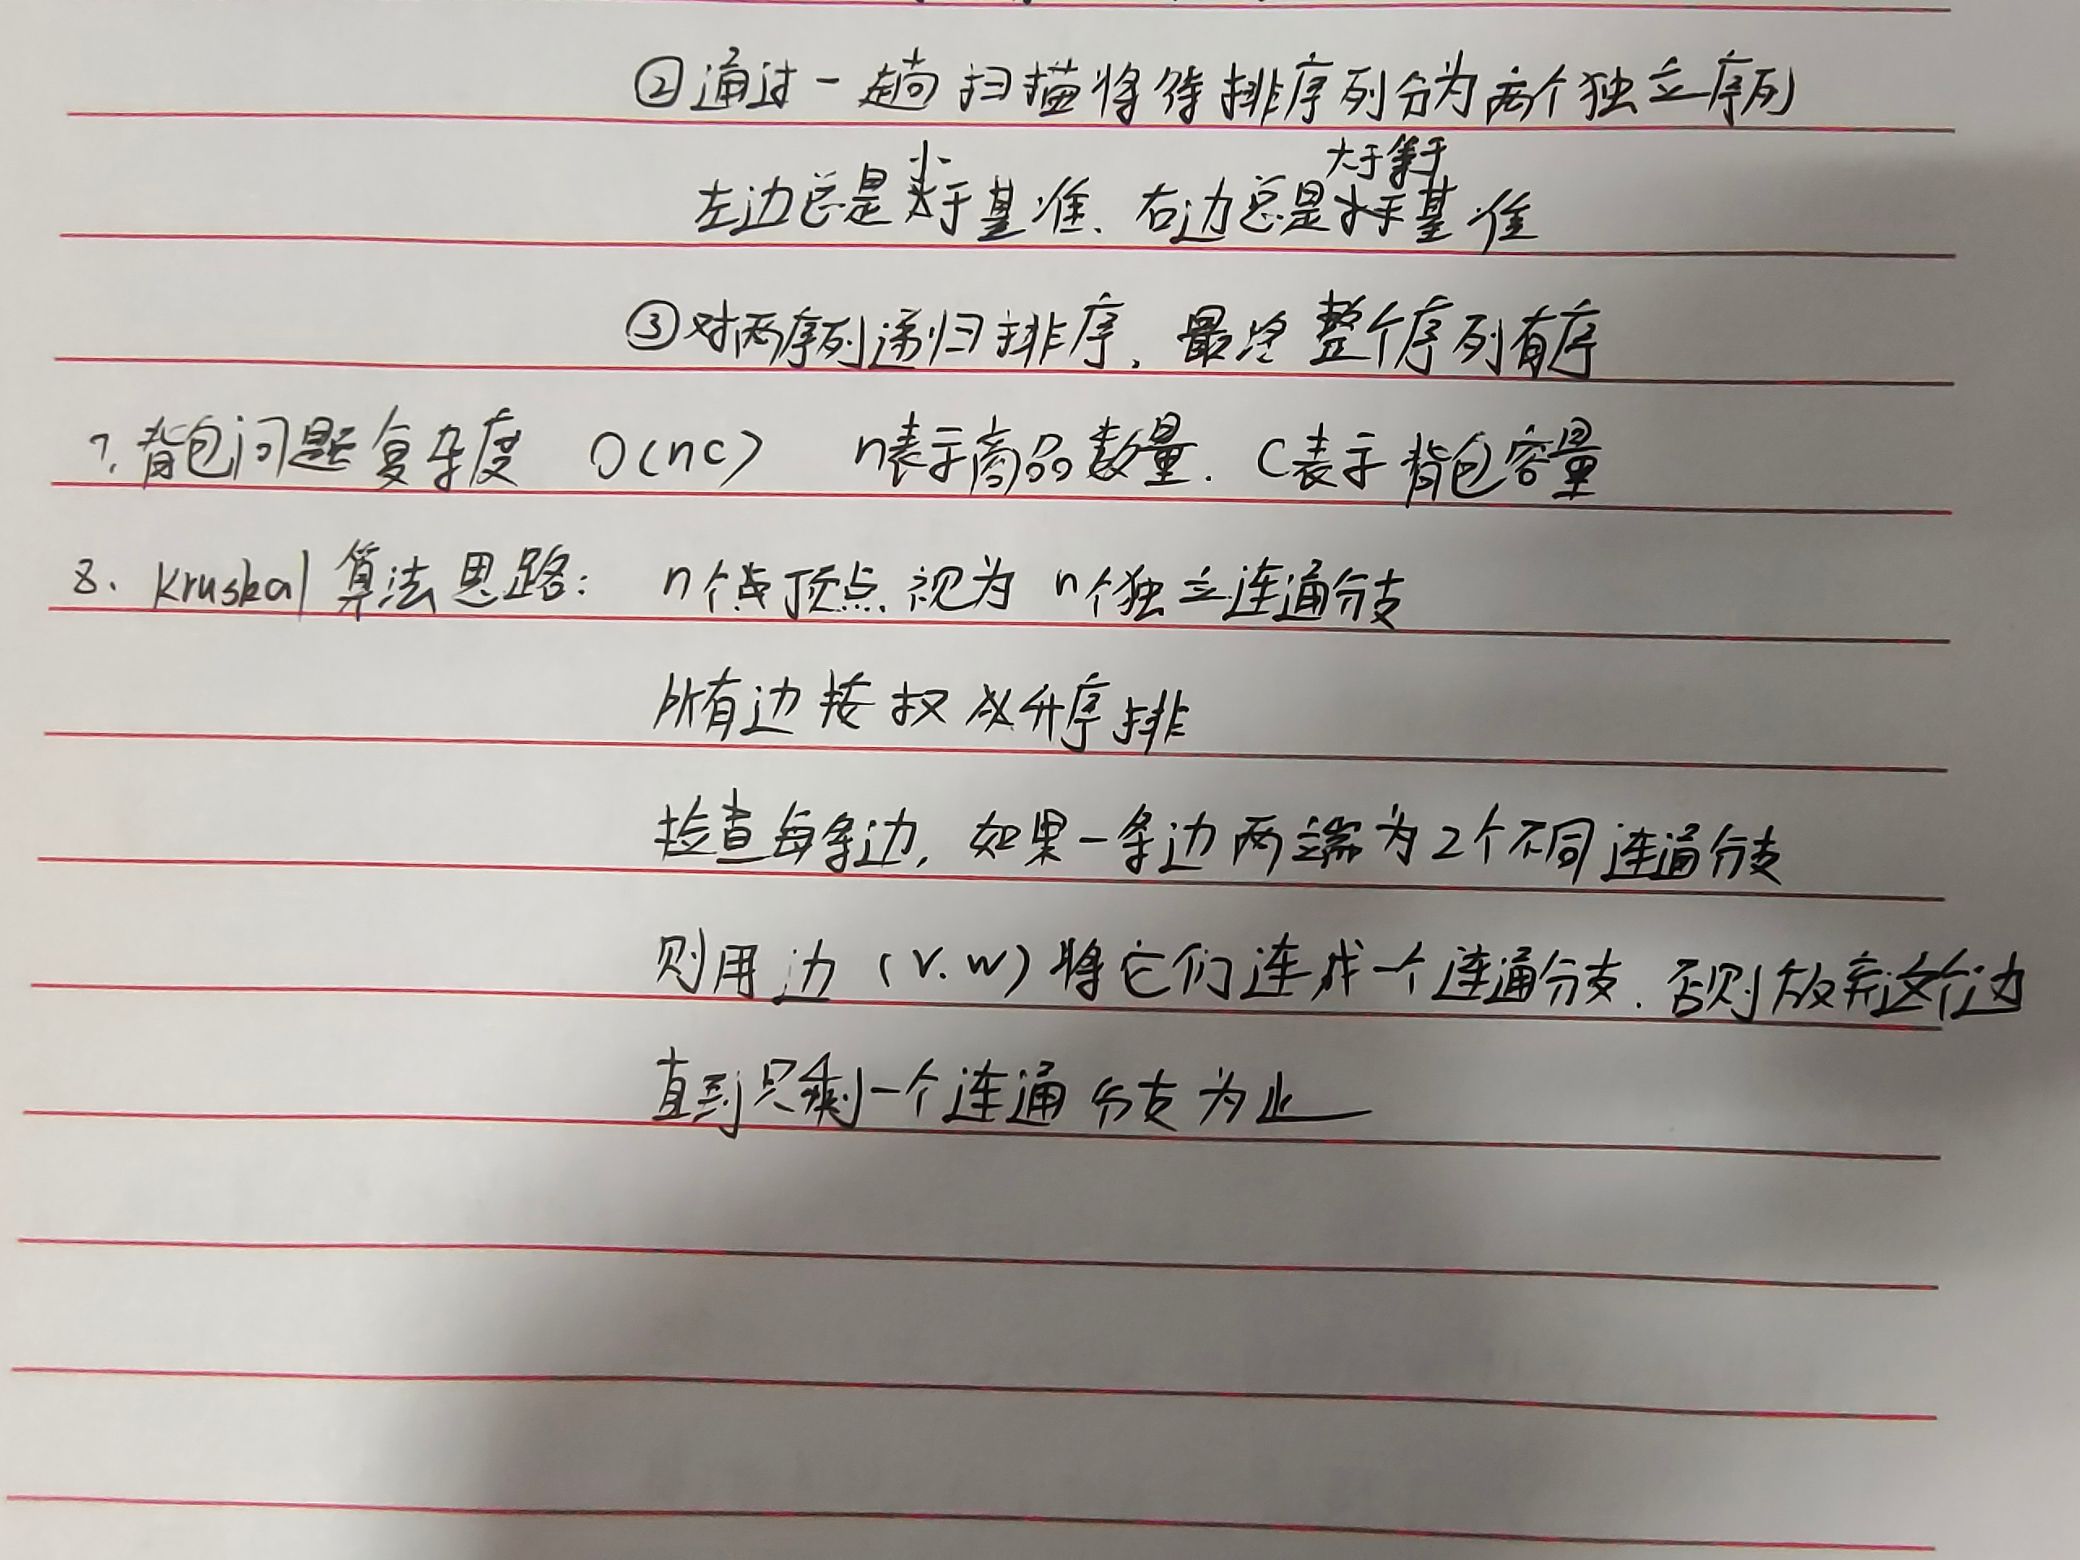 ②通过一趟扫描将待排序列分为两个独立序列
左边总是小于基准、右边总是大于等于基准
③对两序列递归排序,最终整个序列有序
7.背包问题复杂度 O(nc) n表示商品数量. C表示背包容量
8. Kruskal算法思路: n个顶点视为n个独立连通分支
所有边按权从升序排
检查每条边,如果一条边两端为2个不同连通分支
则用边(v.w)将它们连成一个连通分支.否则放弃这个边
直到只剩一个连通分支为止